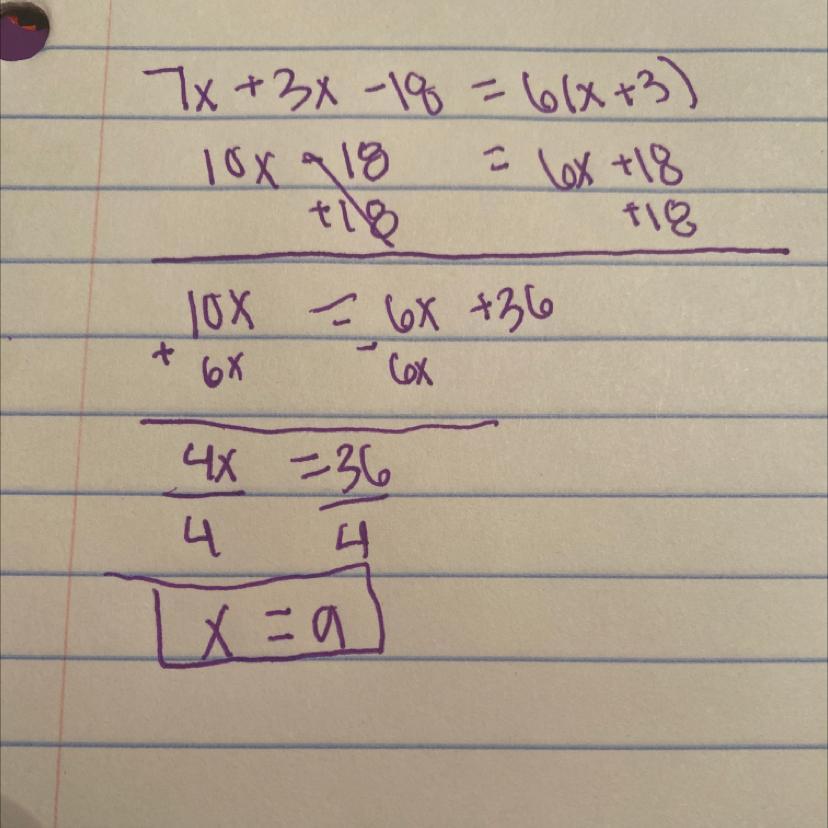 7x + 3x - 18 = 6(x + 3)
10x - 18 = 6x + 18
+18 +18
10x = 6x + 36
+ 6x - 6x
4x = 36
4 4
x = 9